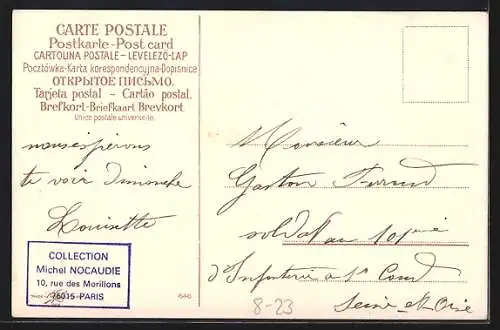 CARTE POSTALE
Postkarte-Post card
CARTOLINA POSTALE-LEVELEZŐ-LAP
Pocztówka-Karta korespondencyjna-Dopisnice
ОТКРЫТОЕ ПИСЬМО.
Tarjeta postal - Cartão postal.
Brefkort-Briefkaart Brevkort
Union postale universelle.
nous espérons
te voir Dimanche
Louisette
COLLECTION
Michel NOCAUDIE
10, rue des Morillons
75015-PARIS
Monsieur
Gaston
soldat au 101ème
d'Infanterie a
Seine et Oise
8-23